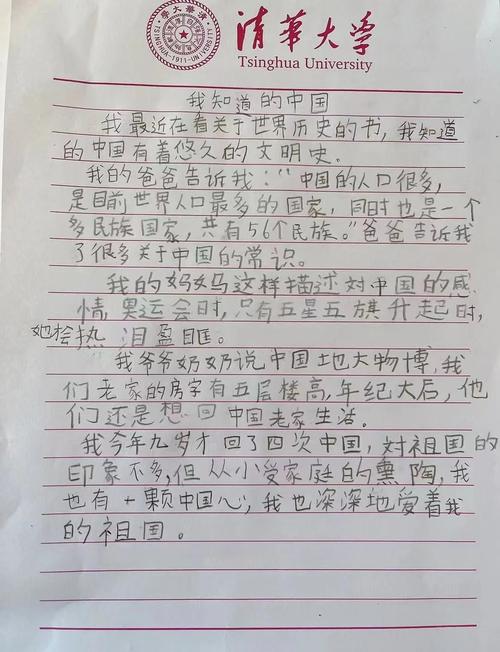 清華大學
TSINGHUA
UNIVERSITY
-1911-
清華大学
Tsinghua University
我知道的中国
我最近在看关于世界历史的书，我知道
的中国有着悠久的文明史．
我的爸爸告诉我：“中国的人口很多，
是目前世界人口最多的国家，同时也是一个
多民族国家，共有56个民族。”爸爸告诉我
了很多关于中国的常识。
我的妈妈这样描述对中国的感
情，奥运会时，只有五星五旗升起时，
她桧热泪盈眶。
我爷爷奶奶说中国地大物博，我
们老家的房字有五层楼高，年纪大后，他
们还是想回中国老家生活。
我今年九岁才回了四次中国，对祖国的
印象不多，但从小受家庭的熏陶，我
也有一颗中国心，我也深深地爱着我
的祖国。